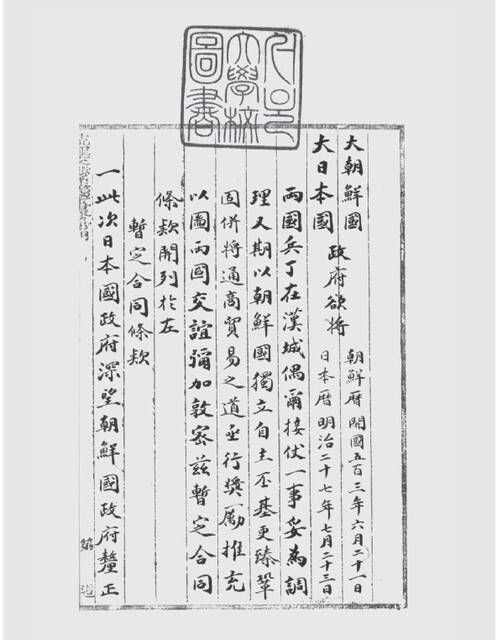 大學校
圖書
大朝鮮國
大日本國
政府欲將
朝鮮曆開國五百三年六月二十一日
日本曆明治二十七年七月二十三日
兩國兵丁在漢城偶爾接仗一事妥為調
理又期以朝鮮國獨立自主丕基更臻鞏
固併將通商貿易之道亟行獎勵推充
以圖兩国交誼彌加敦密茲暫定合同
條款開列於左
暫定合同條款
一此次日本國政府深望朝鮮國政府釐正